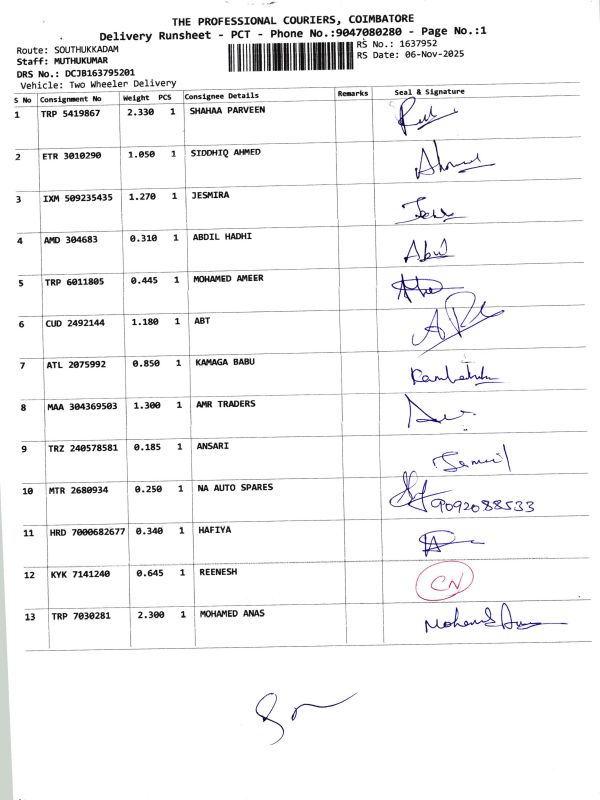 THE PROFESSIONAL COURIERS, COIMBATORE
Delivery Runsheet - PCT - Phone No.:9047080280 - Page No.:1
Route: SOUTHUKKADAM RS No.: 1637952
Staff: MUTHUKUMAR RS Date: 06-Nov-2025
DRS No.: DCJB163795201
Vehicle: Two Wheeler Delivery
S No Consignment No Weight PCS Consignee Details Remarks Seal & Signature
1 TRP 5419867 2.330 1 SHAHAA PARVEEN
2 ETR 3010290 1.050 1 SIDDHIQ AHMED
3 IXM 509235435 1.270 1 JESMIRA
4 AMD 304683 0.310 1 ABDIL HADHI
5 TRP 6011805 0.445 1 MOHAMED AMEER
6 CUD 2492144 1.180 1 ABT
7 ATL 2075992 0.850 1 KAMAGA BABU
8 MAA 304369503 1.300 1 AMR TRADERS
9 TRZ 240578581 0.185 1 ANSARI
10 MTR 2680934 0.250 1 NA AUTO SPARES 9092088533
11 HRD 7000682677 0.340 1 HAFIYA
12 KYK 7141240 0.645 1 REENESH CN
13 TRP 7030281 2.300 1 MOHAMED ANAS